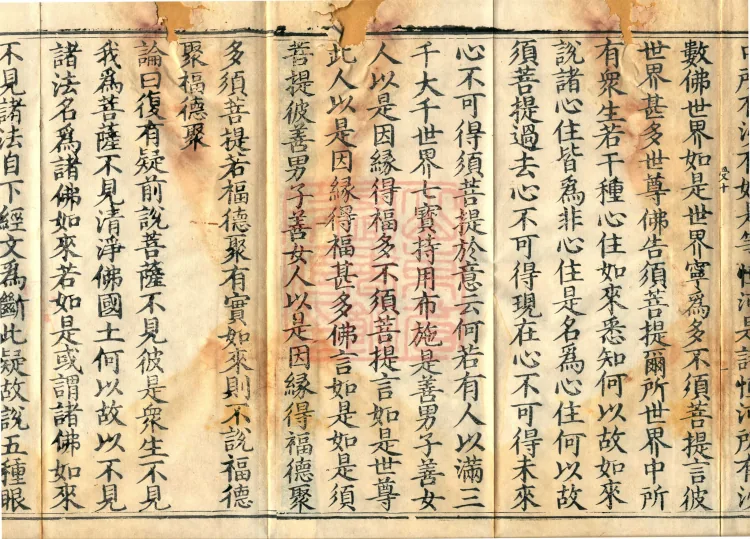 數佛世界如是世界寧爲多不須菩提言彼
世界甚多世尊佛告須菩提爾所世界中所
有衆生若干種心住如來悉知何以故如來
說諸心住皆爲非心住是名爲心住何以故
須菩提過去心不可得現在心不可得未來
心不可得須菩提於意云何若有人以滿三
千大千世界七寶持用布施是善男子善女
人以是因緣得福多不須菩提言如是世尊
此人以是因緣得福甚多佛言如是如是須
菩提彼善男子善女人以是因緣得福德聚
多須菩提若福德聚有實如來則不說福德
聚福德聚
論曰復有疑前說菩薩不見彼是衆生不見
我爲菩薩不見清淨佛國土何以故以不見
諸法名爲諸佛如來若如是或謂諸佛如來
不見諸法自下經文爲斷此疑故說五種眼